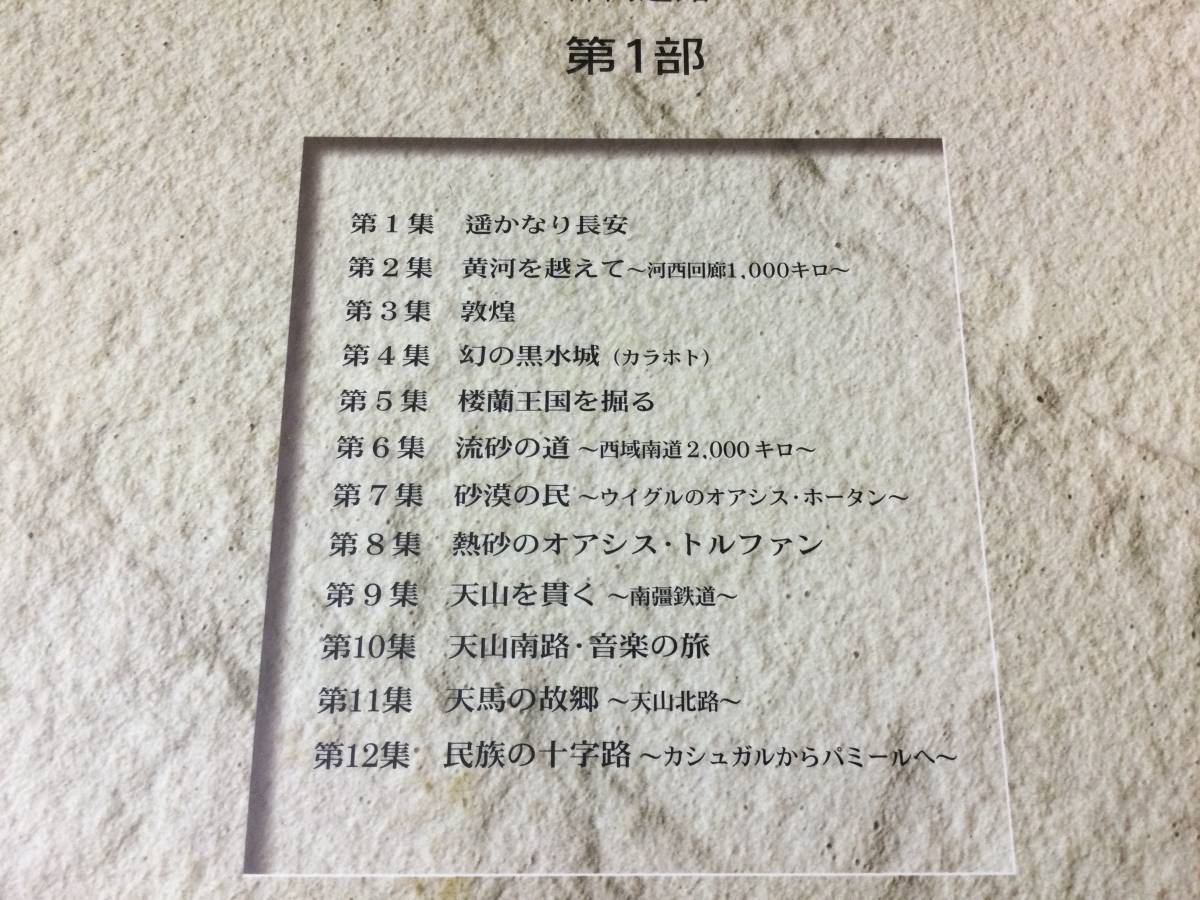 第1部
第1集 遥かなり長安
第2集 黄河を越えて～河西回廊1,000キロ～
第3集 敦煌
第4集 幻の黒水城（カラホト）
第5集 楼蘭王国を掘る
第6集 流砂の道～西域南道2,000キロ～
第7集 砂漠の民～ウイグルのオアシス・ホータン～
第8集 熱砂のオアシス・トルファン
第9集 天山を貫く～南疆鉄道～
第10集 天山南路・音楽の旅
第11集 天馬の故郷～天山北路～
第12集 民族の十字路～カシュガルからパミールへ～